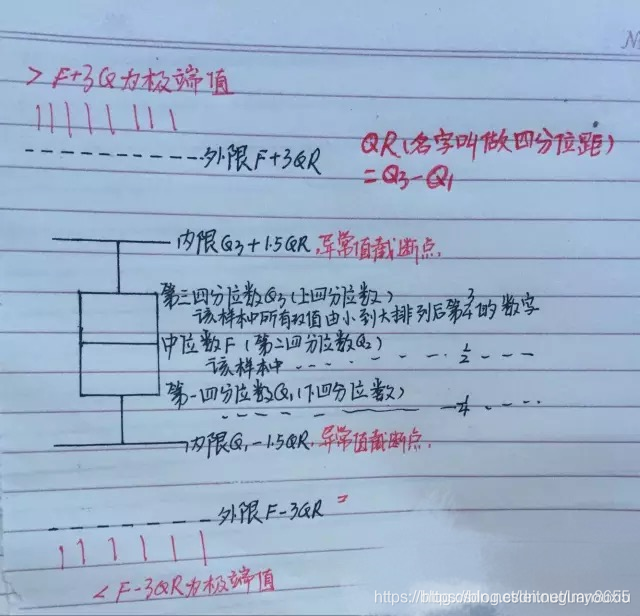 > F+3Q为极端值
外限F+3QR
QR(名字叫做四分位距)
=Q3-Q1
内限Q3+1.5QR,异常值截断点.
第三四分位数Q3(上四分位数)
该样本中所有数值由小到大排列后第3/4的数字
中位数F(第二四分位数Q2)
该样本中 1/2
第一四分位数Q1(下四分位数)
1/4
内限Q1-1.5QR,异常值截断点.
外限F-3QR =
< F-3QR为极端值